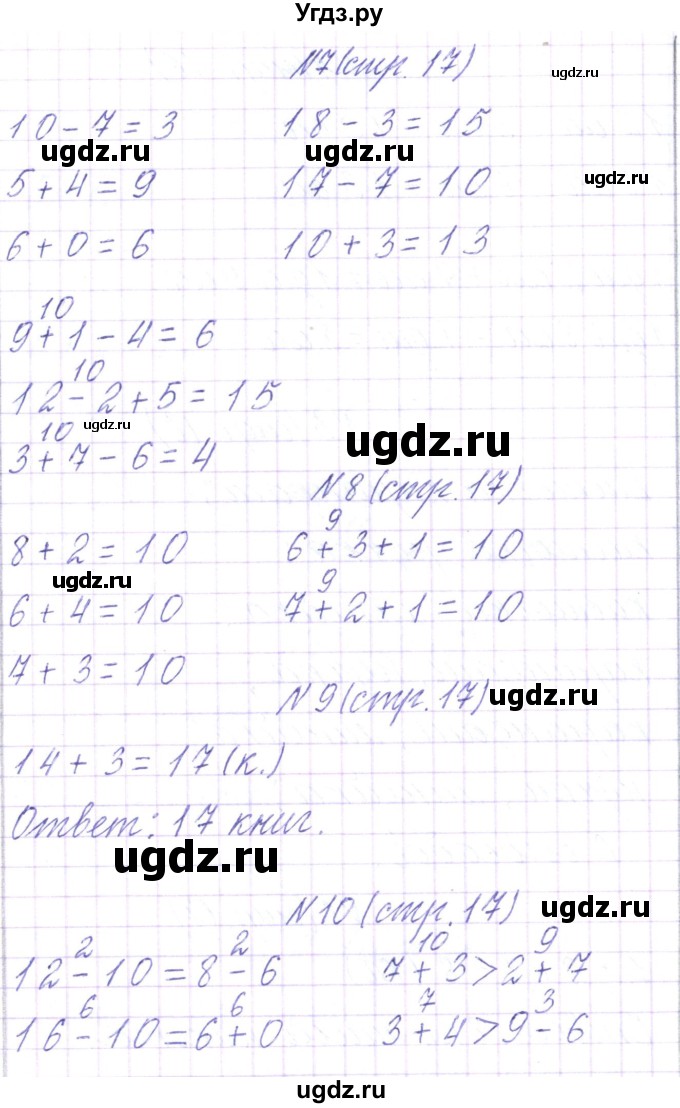 Угдз.ру
№7(стр. 17)
ugdz.ru
10 - 7 = 3 18 - 3 = 15
ugdz.ru ugdz.ru
5 + 4 = 9 17 - 7 = 10
ugdz.ru
6 + 0 = 6 10 + 3 = 13
10
9 + 1 - 4 = 6
10
12 - 2 + 5 = 15
10
ugdz.ru
3 + 7 - 6 = 4
ugdz.ru
№8(стр. 17)
9
8 + 2 = 10 6 + 3 + 1 = 10
ugdz.ru
9
6 + 4 = 10 7 + 2 + 1 = 10
7 + 3 = 10
№9(стр. 17)
ugdz.ru
14 + 3 = 17 (к.)
Ответ: 17 книг.
ugdz.ru
№10(стр. 17)
ugdz.ru
2 2 10 9
12 - 10 = 8 - 6 7 + 3 > 2 + 7
6 6 7 3
16 - 10 = 6 + 0 3 + 4 > 9 - 6
ugdz.ru